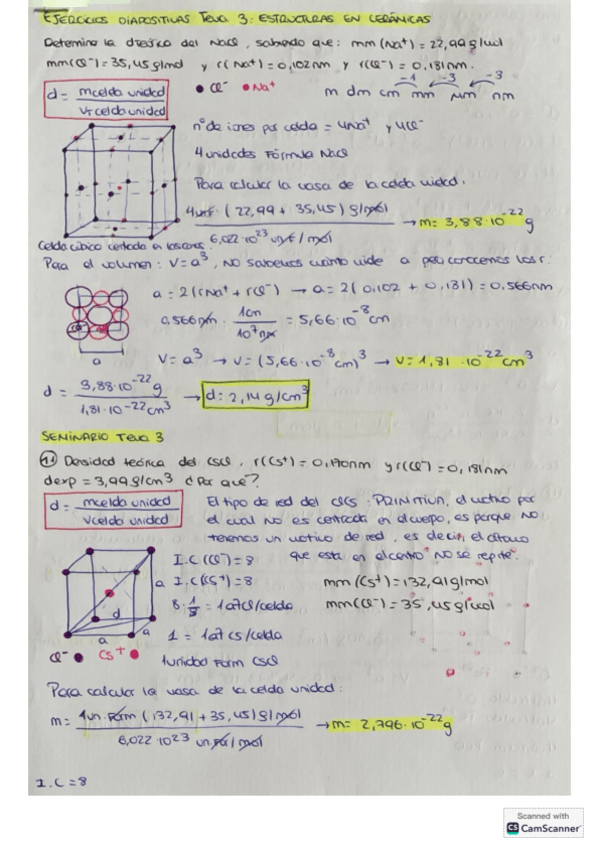 EJERCICIOS DIAPOSITIVAS TEMA 3: ESTRUCTURAS EN CERÁMICAS
Determina la d teórica del NaCl, sabiendo que: mm (Na⁺) = 22,99 g/mol
mm (Cl⁻) = 35,45 g/mol y r(Na⁺) = 0,102 nm y r(Cl⁻) = 0,181 nm.
d = mcelda unidad / Vcelda unidad
• Cl⁻ • Na⁺
-1 -3 -3
m dm cm mm μm nm
nº de iones por celda = 4Na⁺ y 4Cl⁻
4 unidades Fórmula NaCl
Para calcular la masa de la celda unidad.
4unf · (22,99 + 35,45) g/mol / 6,022·10²³ unf/mol → m = 3,88·10⁻²² g
Celda cúbica centrada en las caras.
Para el volumen: V = a³, NO sabemos cuanto mide a pero conocemos los r:
a = 2(rNa⁺ + rCl⁻) → a = 2(0,102 + 0,181) = 0,566nm
0,566nm · 1cm / 10⁷nm = 5,66·10⁻⁸ cm
a
V = a³ → V = (5,66·10⁻⁸ cm)³ → V = 1,81 · 10⁻²² cm³
d = 3,88·10⁻²² g / 1,81·10⁻²² cm³ → d = 2,14 g/cm³
SEMINARIO TEMA 3
1. Densidad teórica del CsCl, r(Cs⁺) = 0,170nm y r(Cl⁻) = 0,181nm
dexp = 3,99 g/cm³ ¿Por qué?
d = mcelda unidad / Vcelda unidad
El tipo de red del ClCs: PRIMITIVA, el motivo por
el cual NO es centrada en el cuerpo, es porque NO
tenemos un motivo de red, es decir, el átomo
que esta en el centro NO se repite.
I.C (Cl⁻) = 8
I.C (Cs⁺) = 8
8 · 1/8 = 1 at Cl/celda
1 = 1 at Cs/celda
1 unidad Form CsCl
mm (Cs⁺) = 132,91 g/mol
mm (Cl⁻) = 35,45 g/mol
a
d
a
a
Cl⁻ • Cs⁺ •
Para calcular la masa de la celda unidad:
m = 1un. Form (132,91 + 35,45) g/mol / 6,022·10²³ un.for/mol → m = 2,796·10⁻²² g
I.C = 8
Scanned with
CS CamScanner